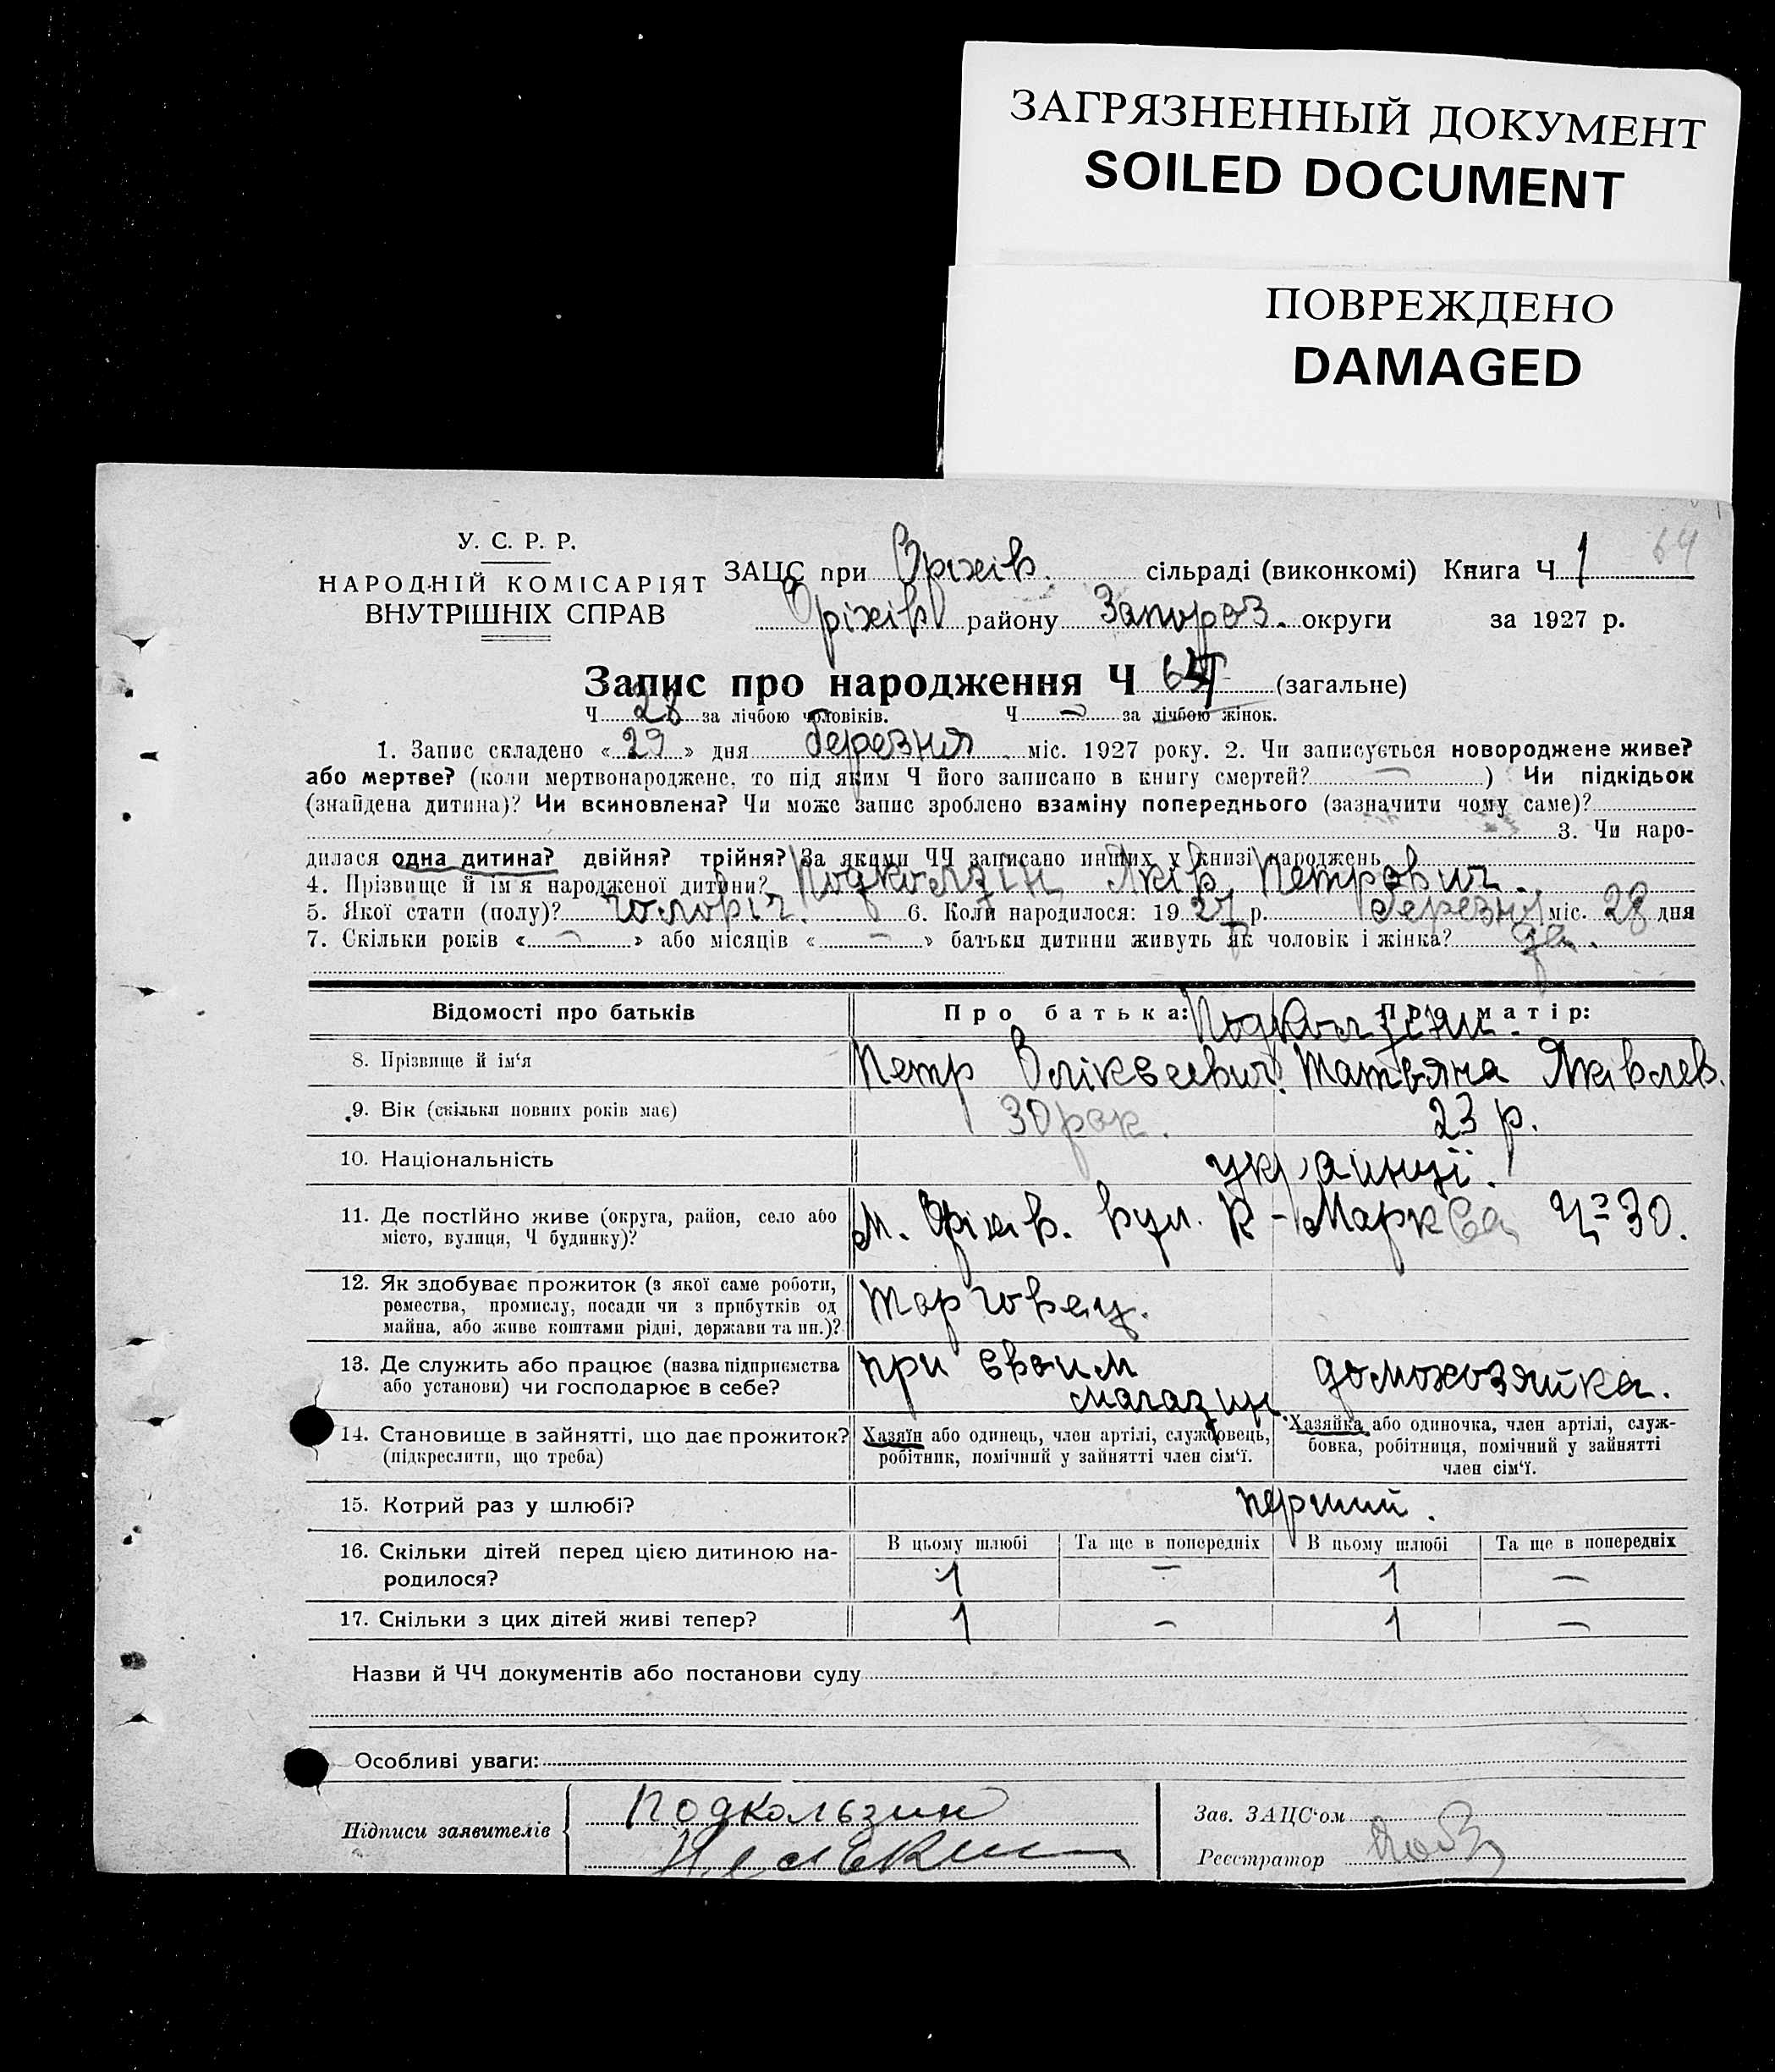 ЗАГРЯЗНЕННЫЙ ДОКУМЕНТ
SOILED DOCUMENT
ПОВРЕЖДЕНО
DAMAGED
64
У. С. Р. Р.
НАРОДНІЙ КОМІСАРІЯТ
ВНУТРІШНІХ СПРАВ
ЗАЦС при Оріхів. сільраді (виконкомі) Книга Ч. 1
Оріхів району Запороз. округи за 1927 р.
Запис про народження Ч 64 (загальне)
Ч 28 за лічбою чоловіків. Ч — за лічбою жінок.
1. Запис складено «29» дня березня міс. 1927 року. 2. Чи записується новороджене живе?
або мертве? (коли мертвонароджене, то під яким Ч його записано в книгу смертей? — ) Чи підкідьок
(знайдена дитина)? Чи всиновлена? Чи може запис зроблено взаміну попереднього (зазначити чому саме)?
3. Чи наро-
дилася одна дитина? двійня? трійня? За якими ЧЧ записано инших у книзі народжень
4. Прізвище й ім'я народженої дитини? Подколзін Яків Петрович.
5. Якої стати (полу)? чоловіч. 6. Коли народилося: 1927 р. березня міс. 28 дня
7. Скільки років « — » або місяців « — » батьки дитини живуть як чоловік і жінка?
Відомості про батьків Про батька: Про матір:
Подколзіни.
8. Прізвище й ім'я Петр Татьяна Яківлев.
9. Вік (скільки повних років має) 30 рок. 23 р.
10. Національність українці.
11. Де постійно живе (округа, район, село або
місто, вулиця, Ч будинку)? м. Оріхів. вул. К-Маркса Ч 30.
12. Як здобуває прожиток (з якої саме роботи,
ремества, промислу, посади чи з прибутків од
майна, або живе коштами рідні, держави та ин.)? Торговец.
13. Де служить або працює (назва підприємства
або установи) чи господарює в себе? при своим магазин. домохозяйка.
14. Становище в зайнятті, що дає прожиток?
(підкреслити, що треба)
Хазяїн або одинець, член артілі, службовець,
робітник, помічний у зайнятті член сім'ї.
Хазяйка або одиночка, член артілі, служ-
бовка, робітниця, помічний у зайнятті
член сім'ї.
15. Котрий раз у шлюбі? перший.
В цьому шлюбі Та ще в попередніх В цьому шлюбі Та ще в попередніх
16. Скільки дітей перед цією дитиною на-
родилося? 1 — 1 —
17. Скільки з цих дітей живі тепер? 1 — 1 —
Назви й ЧЧ документів або постанови суду
Особливі уваги:
Підписи заявителів
Подкользин
Зав. ЗАЦС'ом
Реєстратор